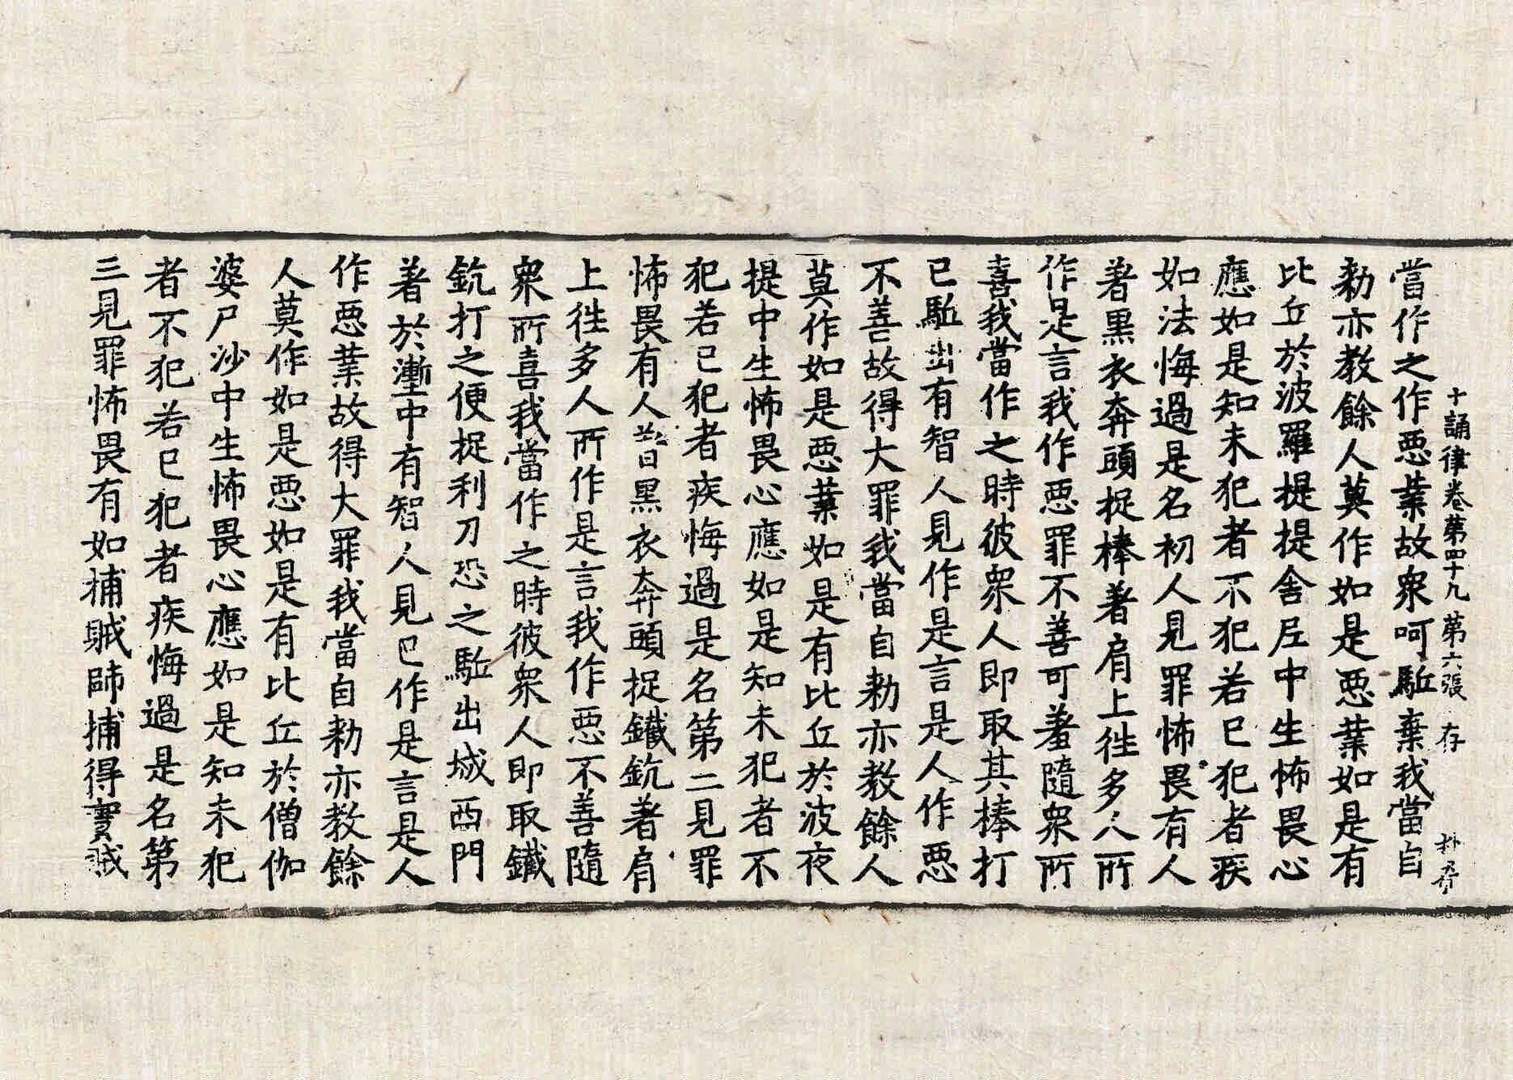 十誦律卷第四十九 第六張 存
當作之作惡業故衆呵駈棄我當自
勑亦教餘人莫作如是惡業如是有
比丘於波羅提提舍尼中生怖畏心
應如是知未犯者不犯若已犯者疾
如法悔過是名初人見罪怖畏有人
著黑衣奔頭捉棒著肩上往多人所
作是言我作惡罪不善可羞隨衆所
喜我當作之時彼衆人即取其棒打
已駈出有智人見作是言是人作惡
不善故得大罪我當自勑亦教餘人
莫作如是惡業如是有比丘於波夜
提中生怖畏心應如是知未犯者不
犯若已犯者疾悔過是名第二見罪
怖畏有人著黑衣奔頭捉鐵鈧著肩
上往多人所作是言我作惡不善隨
衆所喜我當作之時彼衆人即取鐵
鈧打之便捉利刀恐之駈出城西門
著於壍中有智人見已作是言是人
作惡業故得大罪我當自勑亦教餘
人莫作如是惡如是有比丘於僧伽
婆尸沙中生怖畏心應如是知未犯
者不犯若已犯者疾悔過是名第
三見罪怖畏有如捕賊師捕得實賊